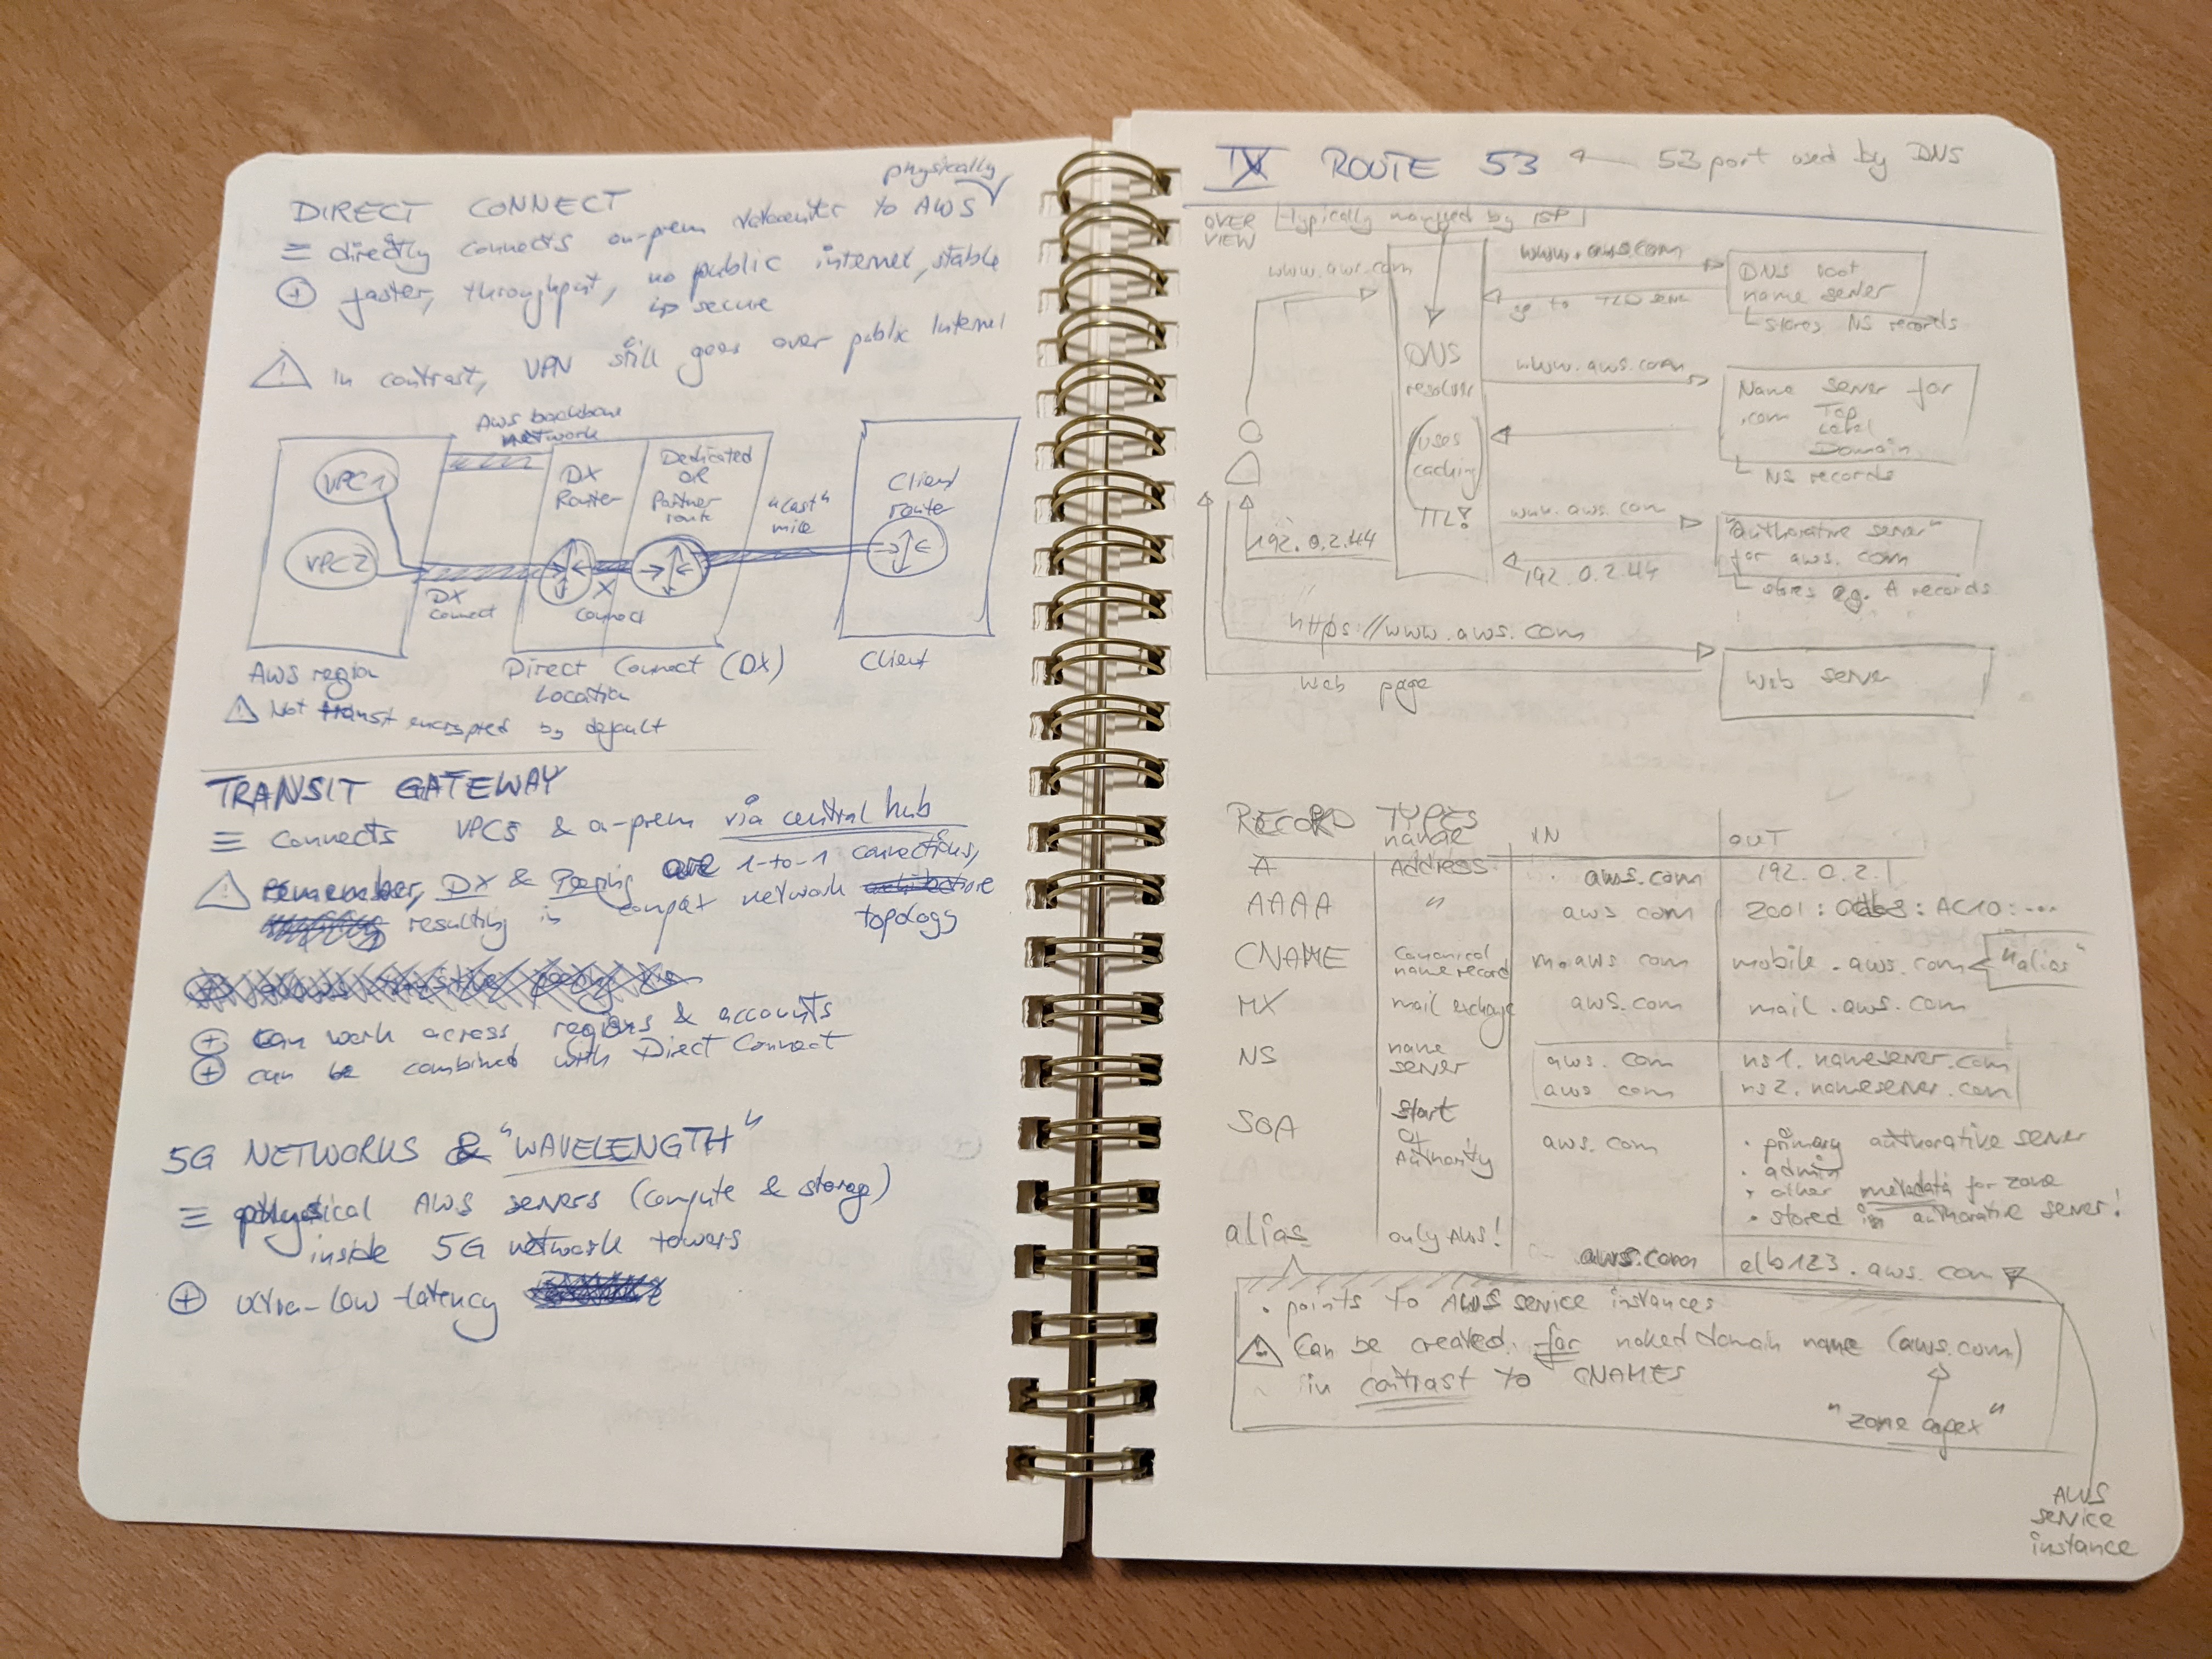 physically
DIRECT CONNECT
= directly connects on-prem datacenter to AWS
+ faster, throughput, no public internet, stable
is secure
! In contrast, VPN still goes over public Internet
AWS backbone
network
VPC1
VPC2
DX
Router
Dedicated
OR
Partner
route
"Last"
mile
Client
router
DX
Connect
X
Connect
AWS region
Direct Connect (DX)
Location
Client
! Not transit encrypted by default
TRANSIT GATEWAY
= connects VPCs & on-prem via central hub
! remember, DX & Peering are 1-to-1 connections,
resulting in network architecture
topology
+ can work across regions & accounts
+ can be combined with Direct Connect
5G NETWORKS & "WAVELENGTH"
= physical AWS servers (compute & storage)
inside 5G network towers
+ ultra-low-latency
IX ROUTE 53 ← 53 port used by DNS
OVER
VIEW
typically managed by ISP
www.aws.com
www.aws.com
go to TLD serv
DNS root
name server
stores NS records
DNS
resolver
(uses
caching)
TTL!
www.aws.com
Name server for
.com Top
Level
Domain
NS records
www.aws.com
192.0.2.44
"authorative server"
for aws.com
stores e.g. A records
192.0.2.44
https://www.aws.com
web page
Web server
RECORD TYPES
name IN OUT
A Address aws.com 192.0.2.1
AAAA " aws com 2001:0db8:AC10:...
CNAME canonical name record m.aws com mobile.aws.com "alias"
MX mail exchange aws.com mail.aws.com
NS name server aws.com ns1.nameserver.com
aws com ns2.nameserver.com
SOA Start of Authority aws.com • primary authorative server
• admin
• other metadata for zone
• stored in authorative server!
alias only AWS! aws.com elb123.aws.com
• points to AWS service instances
! Can be created for naked domain name (aws.com)
in contrast to CNAMES
"zone apex"
AWS
service
instance